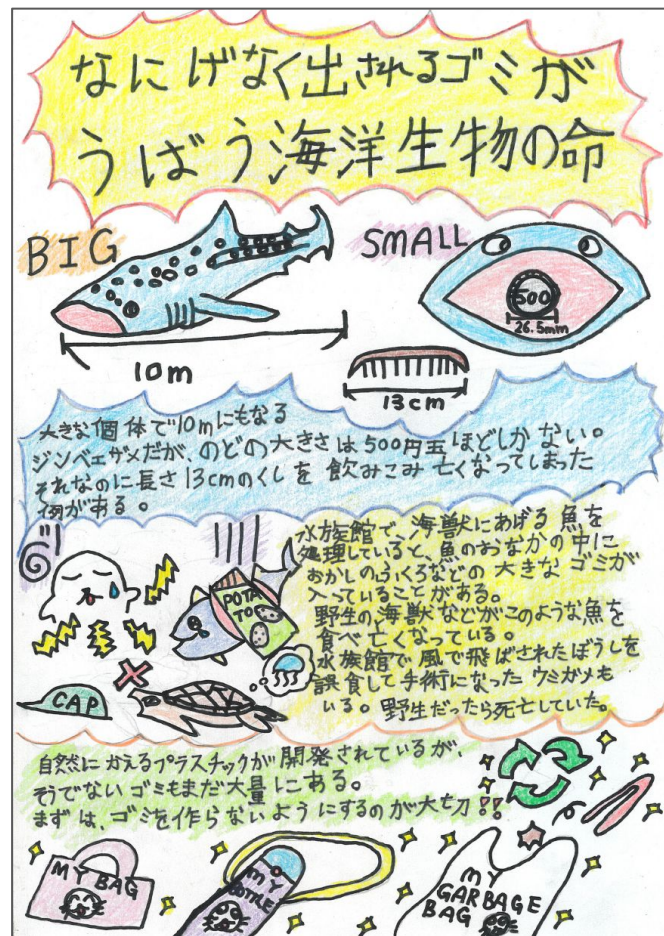 なにげなく出されるゴミが
うばう海洋生物の命
BIG
SMALL
500
26.5mm
10m
13cm
大きな個体で10mにもなる
ジンベエザメだが、のどの大きさは500円玉ほどしかない。
それなのに長さ13cmのくしを飲みこみ亡くなってしまった
例がある。
水族館で、海獣にあげる魚を
処理していると、魚のおなかの中に
おかしのふくろなどの大きなゴミが
入っていることがある。
野生の海獣などがこのような魚を
食べ亡くなっている。
水族館で風で飛ばされたぼうしを
誤食して手術になったウミガメも
いる。野生だったら死亡していた。
POTA
TO
CAP
自然にかえるプラスチックが開発されているが、
そうでないゴミもまだ大量にある。
まずは、ゴミを作らないようにするのが大切!!
MY BAG
MY
BOTTLE
MY
GARBAGE
BAG